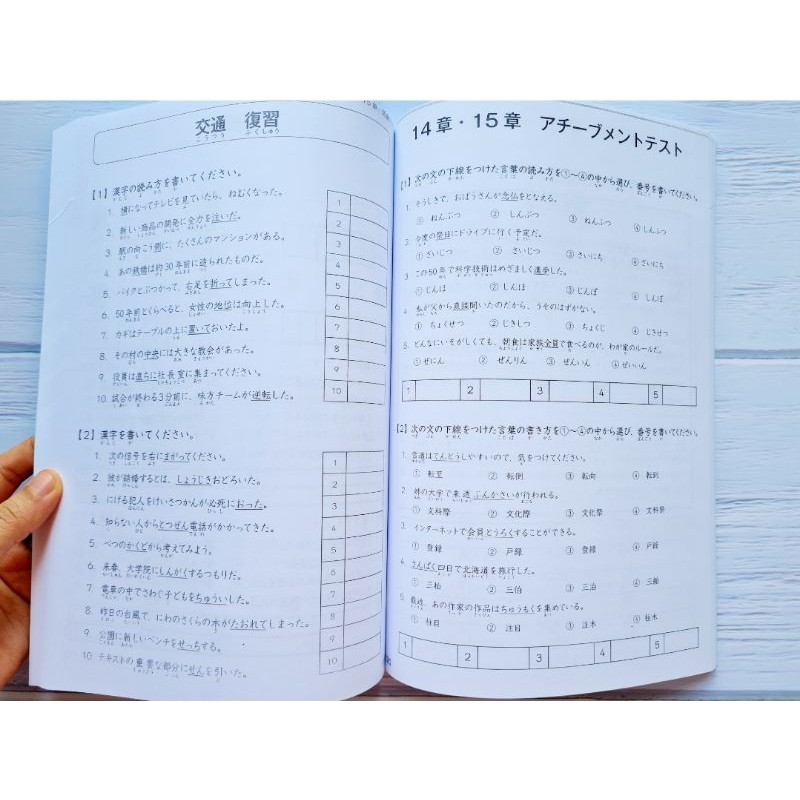 交通　復習
こうつう　ふくしゅう
【1】漢字の読み方を書いてください。
1. 横になってテレビを見ていたら、ねむくなった。
2. 新しい商品の開発に全力を注いだ。
3. 駅の向こう側に、たくさんのマンションがある。
4. あの鉄橋は約30年前に造られたものだ。
5. バイクとぶつかって、右足を折ってしまった。
6. 50年前とくらべると、女性の地位は向上した。
7. カギはテーブルの上に置いておいたよ。
8. その村の中央には大きな教会があった。
9. 役員は直ちに社長室に集まってください。
10. 試合が終わる3分前に、味方チームが逆転した。
1
2
3
4
5
6
7
8
9
10
【2】漢字を書いてください。
1. 次の信号を右にまがってください。
2. 彼が結婚するとは、しょうじきおどろいた。
3. にげる犯人をけいさつかんが必死におった。
4. 知らない人からとつぜん電話がかかってきた。
5. べつのかくどから考えてみよう。
6. 来春、大学院にしんがくするつもりだ。
7. 電車の中でさわぐ子どもをちゅういした。
8. 昨日の台風で、にわのさくらの木がたおれてしまった。
9. 公園に新しいベンチをせっちする。
10. テキストの重要な部分にせんを引いた。
1
2
3
4
5
6
7
8
9
10
14章・15章　アチーブメントテスト
【1】次の文の下線をつけた言葉の読み方を①～④の中から選び、番号を書いてください。
1. そうしきで、おぼうさんが念仏をとなえる。
① ねんぶつ　② しんぶつ　③ ねんふつ　④ しんふつ
2. 今度の祭日にドライブに行く予定だ。
① さいじつ　② さいじつ　③ さいにち　④ さいにち
3. この50年で科学技術はめざましく進歩した。
① じんほ　② しんほ　③ じんぽ　④ しんぽ
4. 私が父から直接聞いたのだから、うそのはずがない。
① ちょくせつ　② じきしつ　③ ちょくじ　④ じきせつ
5. どんなにいそがしくても、朝食は家族全員で食べるのが、わが家のルールだ。
① ぜにん　② ぜんりん　③ ぜんいん　④ ぜいいん
1　2　3　4　5
【2】次の文の下線をつけた言葉の書き方を①～④の中から選び、番号を書いてください。
1. 雪道はてんとうしやすいので、気をつけてください。
① 転至　② 転倒　③ 転向　④ 転到
2. 姉の大学で来週ぶんかさいが行われる。
① 文科際　② 文化際　③ 文化祭　④ 文科祭
3. インターネットで会員とうろくすることができる。
① 登録　② 戸録　③ 登緑　④ 戸緑
4. さんぱく四日で北海道を旅行した。
① 三粕　② 三伯　③ 三泊　④ 三舶
5. 最近、あの作家の作品はちゅうもくを集めている。
① 柱目　② 注目　③ 注木　④ 柱木
1　2　3　4　5